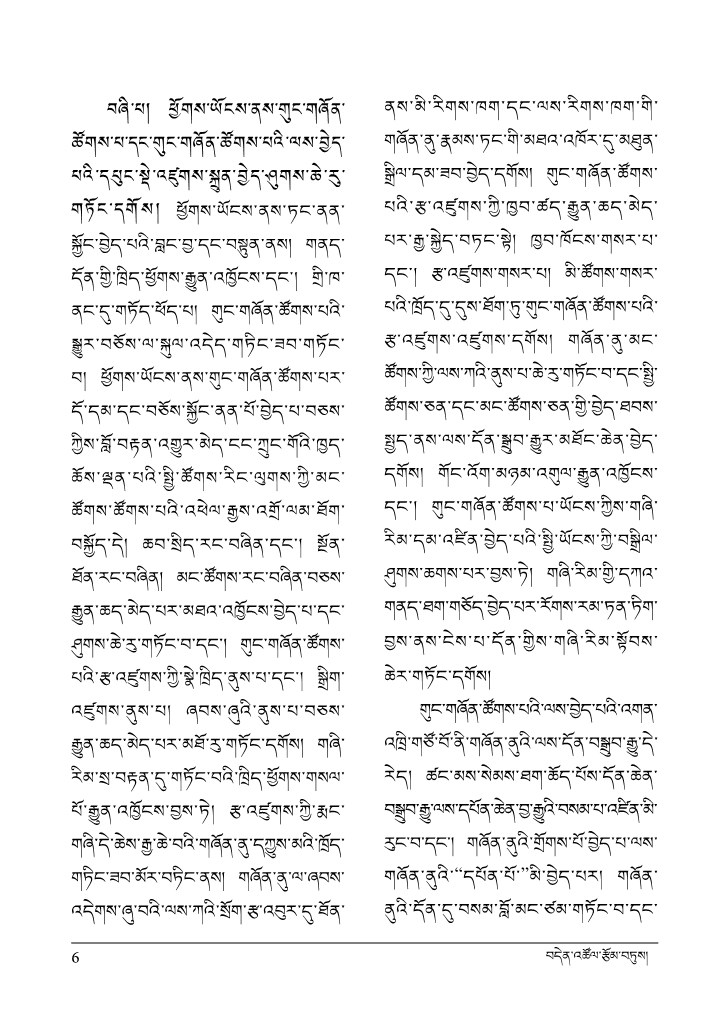 བཞི་པ། ཕྱོགས་ཡོངས་ནས་གུང་གཞོན་
ཚོགས་པ་དང་གུང་གཞོན་ཚོགས་པའི་ལས་བྱེད་
པའི་དཔུང་སྡེ་འཛུགས་སྐྲུན་བྱེད་ཤུགས་ཆེ་རུ་
གཏོང་དགོས། ཕྱོགས་ཡོངས་ནས་ཏང་ནན་
སྐྱོང་བྱེད་པའི་བླང་བྱ་དང་བསྟུན་ནས། གནད་
དོན་གྱི་ཁྲིད་ཕྱོགས་རྒྱུན་འཁྱོངས་དང་། གྲི་ཁ་
ནང་དུ་གཏོད་ཕོད་པ། གུང་གཞོན་ཚོགས་པའི་
སྒྱུར་བཅོས་ལ་སྐུལ་འདེད་གཏིང་ཟབ་གཏོང་
བ། ཕྱོགས་ཡོངས་ནས་གུང་གཞོན་ཚོགས་པར་
དོ་དམ་དང་བཅོས་སྐྱོང་ནན་པོ་བྱེད་པ་བཅས་
ཀྱིས་བློ་བརྟན་འགྱུར་མེད་ངང་ཀྲུང་གོའི་ཁྱད་
ཆོས་ལྡན་པའི་སྤྱི་ཚོགས་རིང་ལུགས་ཀྱི་མང་
ཚོགས་ཚོགས་པའི་འཕེལ་རྒྱས་འགྲོ་ལམ་ཐོག་
བསྐྱོད་དེ། ཆབ་སྲིད་རང་བཞིན་དང་། སྔོན་
ཐོན་རང་བཞིན། མང་ཚོགས་རང་བཞིན་བཅས་
རྒྱུན་ཆད་མེད་པར་མཐའ་འཁྱོངས་བྱེད་པ་དང་
ཤུགས་ཆེ་རུ་གཏོང་བ་དང་། གུང་གཞོན་ཚོགས་
པའི་རྩ་འཛུགས་ཀྱི་སྣེ་ཁྲིད་ནུས་པ་དང་། སྒྲིག་
འཛུགས་ནུས་པ། ཞབས་ཞུའི་ནུས་པ་བཅས་
རྒྱུན་ཆད་མེད་པར་མཐོ་རུ་གཏོང་དགོས། གཞི་
རིམ་སྲ་བརྟན་དུ་གཏོང་བའི་ཁྲིད་ཕྱོགས་གསལ་
པོ་རྒྱུན་འཁྱོངས་བྱས་ཏེ། རྩ་འཛུགས་ཀྱི་རྨང་
གཞི་དེ་ཆེས་རྒྱ་ཆེ་བའི་གཞོན་ནུ་དཀྱུས་མའི་ཁྲོད་
གཏིང་ཟབ་མོར་བཏིང་ནས། གཞོན་ནུ་ལ་ཞབས་
འདེགས་ཞུ་བའི་ལས་ཀའི་སྲོག་རྩ་འབུར་དུ་ཐོན་
ནས་མི་རིགས་ཁག་དང་ལས་རིགས་ཁག་གི་
གཞོན་ནུ་རྣམས་ཏང་གི་མཐའ་འཁོར་དུ་མཐུན་
སྒྲིལ་དམ་ཟབ་བྱེད་དགོས། གུང་གཞོན་ཚོགས་
པའི་རྩ་འཛུགས་ཀྱི་ཁྱབ་ཚད་རྒྱུན་ཆད་མེད་
པར་རྒྱ་སྐྱེད་བཏང་སྟེ། ཁྱབ་ཁོངས་གསར་པ་
དང་། རྩ་འཛུགས་གསར་པ། མི་ཚོགས་གསར་
པའི་ཁྲོད་དུ་དུས་ཐོག་ཏུ་གུང་གཞོན་ཚོགས་པའི་
རྩ་འཛུགས་འཛུགས་དགོས། གཞོན་ནུ་མང་
ཚོགས་ཀྱི་ལས་ཀའི་ནུས་པ་ཆེ་རུ་གཏོང་བ་དང་སྤྱི་
ཚོགས་ཅན་དང་མང་ཚོགས་ཅན་གྱི་བྱེད་ཐབས་
སྤྱད་ནས་ལས་དོན་སྒྲུབ་རྒྱུར་མཐོང་ཆེན་བྱེད་
དགོས། གོང་འོག་མཉམ་འགུལ་རྒྱུན་འཁྱོངས་
དང་། གུང་གཞོན་ཚོགས་པ་ཡོངས་ཀྱིས་གཞི་
རིམ་དམ་འཛིན་བྱེད་པའི་སྤྱི་ཡོངས་ཀྱི་བསྒྲིལ་
ཤུགས་ཆགས་པར་བྱས་ཏེ། གཞི་རིམ་གྱི་དཀའ་
གནད་ཐག་གཅོད་བྱེད་པར་རོགས་རམ་ཏན་ཏིག་
བྱས་ནས་ངེས་པ་དོན་གྱིས་གཞི་རིམ་སྟོབས་
ཆེར་གཏོང་དགོས།
གུང་གཞོན་ཚོགས་པའི་ལས་བྱེད་པའི་འགན་
འཁྲི་གཙོ་བོ་ནི་གཞོན་ནུའི་ལས་དོན་བསྒྲུབ་རྒྱུ་དེ་
རེད། ཚང་མས་སེམས་ཐག་ཆོད་པོས་དོན་ཆེན་
བསྒྲུབ་རྒྱུ་ལས་དཔོན་ཆེན་བྱ་རྒྱུའི་བསམ་པ་འཛིན་མི་
རུང་བ་དང་། གཞོན་ནུའི་གྲོགས་པོ་བྱེད་པ་ལས་
གཞོན་ནུའི་“དཔོན་པོ་”མི་བྱེད་པར། གཞོན་
ནུའི་དོན་དུ་བསམ་བློ་མང་ཙམ་གཏོང་བ་དང་
6
བདེན་འཚོལ་རྩོམ་བཏུས།